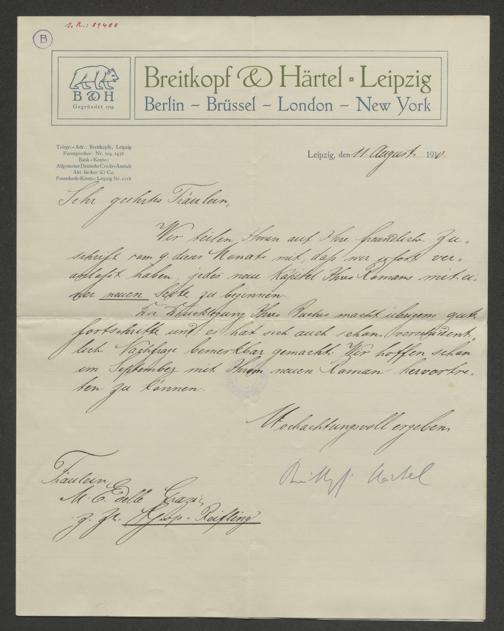 B
B & H
Gegründet 1719
Breitkopf & Härtel · Leipzig
Berlin – Brüssel – London – New York
Telegr.-Adr.: Breitkopfs, Leipzig
Fernsprecher: Nr.
Bank-Konto:
Allgemeine Deutsche Credit-Anstalt
Abt. Becker & Co.
Postscheck-Konto: Leipzig Nr.
Leipzig, den 11. August 191
Sehr geehrtes Fräulein,
Wir teilen Ihnen auf Ihre freundliche Zu-
schrift vom 9. dieses Monats mit, daß wir sofort ver-
anlaßt haben, jedes neue Kapitel Ihres Romans mit ei-
ner neuen Seite zu beginnen.
Die Drucklegung Ihres Buches macht übrigens gute
Fortschritte und es hat sich auch schon
Nachfrage bemerkbar gemacht. Wir hoffen, schon
im September mit Ihrem neuen Roman hervortre-
ten zu können.
Hochachtungsvoll ergeben
Breitkopf Härtel
Fräulein
M. E. delle Grazie,
z. Zt. Reifling